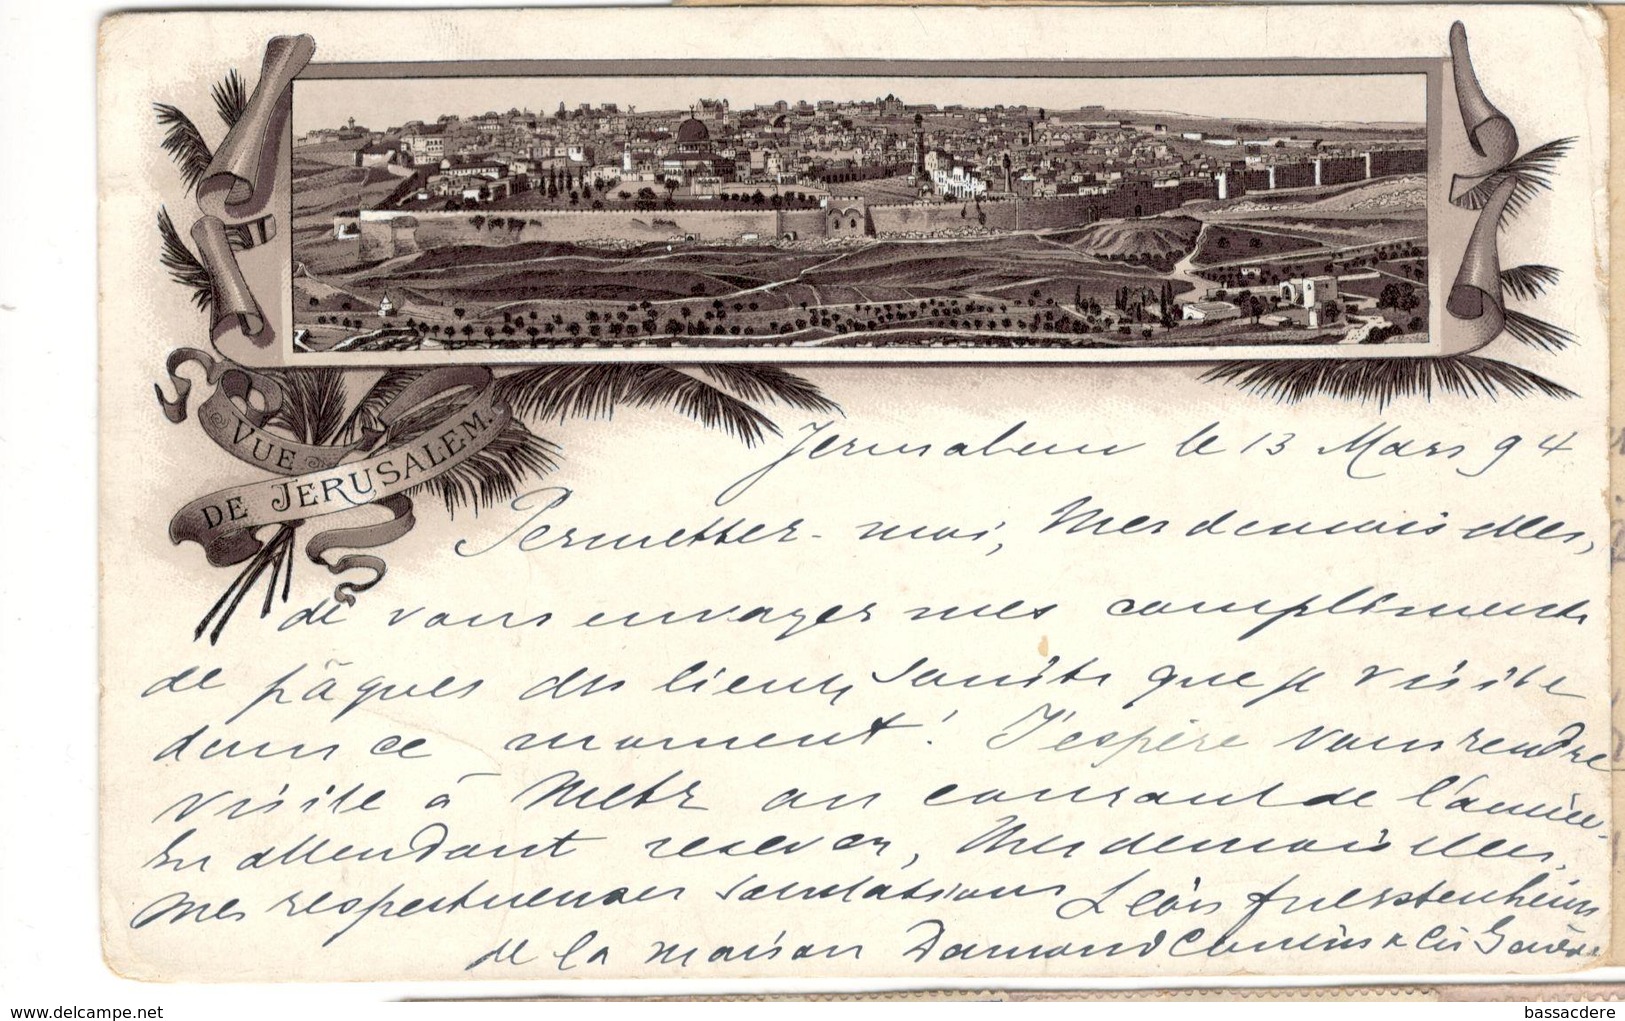 VUE
DE JÉRUSALEM.
Jerusalem le 13 Mars 94
Permettez-moi, Mesdemoiselles,
de vous envoyer mes compliments
de pâques des lieux saints que je visite
dans ce moment! J'espère vous rendre
visite à Metz au courant de l'année.
En attendant recevez, Mesdemoiselles,
mes respectueuses salutations Léon Fuerstenheim
de la maison Cie Genève
delcampe.net
bassacdere